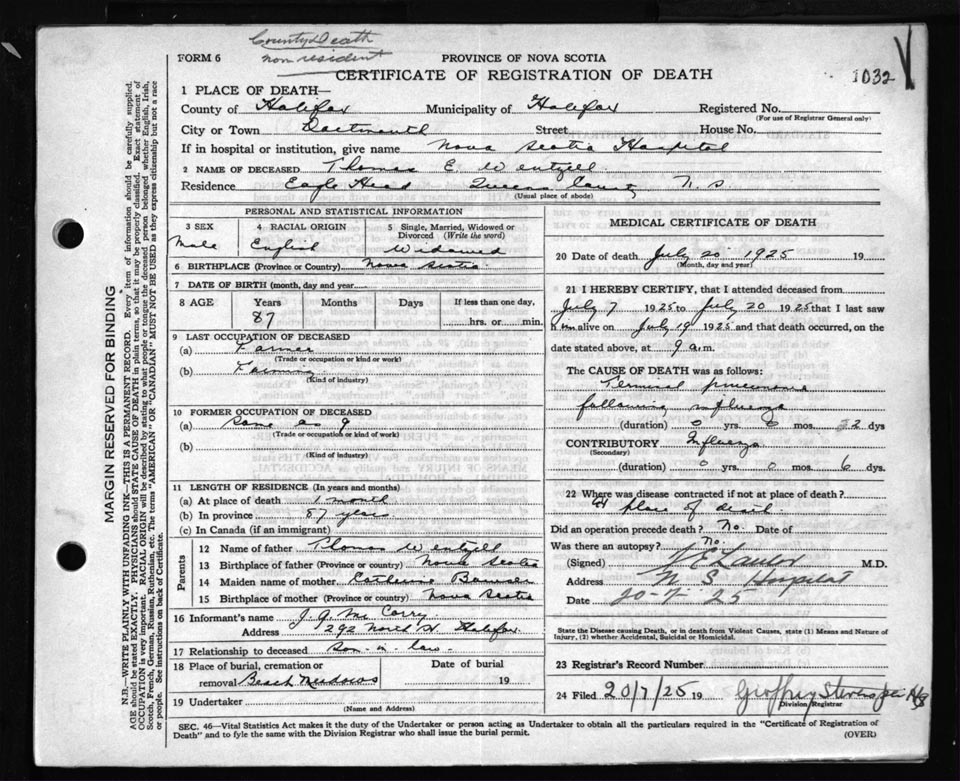 County Death
non resident
1032
FORM 6
PROVINCE OF NOVA SCOTIA
CERTIFICATE OF REGISTRATION OF DEATH
1 PLACE OF DEATH—
County of Halifax Municipality of Halifax Registered No.
(For use of Registrar General only)
City or Town Dartmouth Street House No.
If in hospital or institution, give name Nova Scotia Hospital
2 NAME OF DECEASED Thomas E. Wentzell
Residence Eagle Head Queens County N. S.
(Usual place of abode)
PERSONAL AND STATISTICAL INFORMATION
3 SEX 4 RACIAL ORIGIN 5 Single, Married, Widowed or Divorced (Write the word)
Male English Widowed
6 BIRTHPLACE (Province or Country) Nova Scotia
7 DATE OF BIRTH (month, day and year)
8 AGE Years Months Days If less than one day,
87 hrs. or min.
9 LAST OCCUPATION OF DECEASED
(a) Farmer
(Trade or occupation or kind or work)
(b) Farming
(Kind of industry)
10 FORMER OCCUPATION OF DECEASED
(a) Same as 9
(Trade or occupation or kind of work)
(b)
(Kind of industry)
11 LENGTH OF RESIDENCE (In years and months)
(a) At place of death 1 month
(b) In province 87 years
(c) In Canada (if an immigrant)
Parents
12 Name of father Thomas Wentzell
13 Birthplace of father (Province or country) Nova Scotia
14 Maiden name of mother Catherine
15 Birthplace of mother (Province or country) Nova Scotia
16 Informant's name J. A. McCarry
Address 292 North St Halifax
17 Relationship to deceased Son-in-law
18 Place of burial, cremation or removal Beach Meadows Date of burial 19
19 Undertaker
(Name and Address)
MEDICAL CERTIFICATE OF DEATH
20 Date of death July 20 1925 19
(Month, day and year)
21 I HEREBY CERTIFY, that I attended deceased from
July 7 1925 to July 20 1925 that I last saw
him alive on July 19 1925 and that death occurred, on the
date stated above, at 9 a.m.
The CAUSE OF DEATH was as follows:
Terminal pneumonia
following influenza
(duration) 0 yrs. 0 mos. 2 dys
CONTRIBUTORY Influenza
(Secondary)
(duration) 0 yrs. 0 mos. 6 dys.
22 Where was disease contracted if not at place of death?
At place of death
Did an operation precede death? No. Date of
Was there an autopsy? No.
(Signed) Lawlor M.D.
Address N. S. Hospital
Date 20-7-25
State the Disease causing Death, or in death from Violent Causes, state (1) Means and Nature of
Injury, (2) whether Accidental, Suicidal or Homicidal.
23 Registrar's Record Number
24 Filed 20/7/25 19 Geoffrey Stevens
Division Registrar
SEC. 46—Vital Statistics Act makes it the duty of the Undertaker or person acting as Undertaker to obtain all the particulars required in the "Certificate of Registration of
Death" and to fyle the same with the Division Registrar who shall issue the burial permit.
(OVER)
MARGIN RESERVED FOR BINDING
N.B.—WRITE PLAINLY WITH UNFADING INK—THIS IS A PERMANENT RECORD. Every item of information should be carefully supplied.
AGE should be stated EXACTLY. PHYSICIANS should STATE CAUSE OF DEATH in plain terms, so that it may be properly classified. Exact statement of
OCCUPATION is very important. RACIAL ORIGIN will be described by stating to what people or tongue the deceased person belonged whether English, Irish,
Scotch, French, German, Russian, Ruthenian, etc. The terms "AMERICAN" or "CANADIAN" MUST NOT BE USED as they express citizenship but not a race
or people. See instructions on back of Certificate.